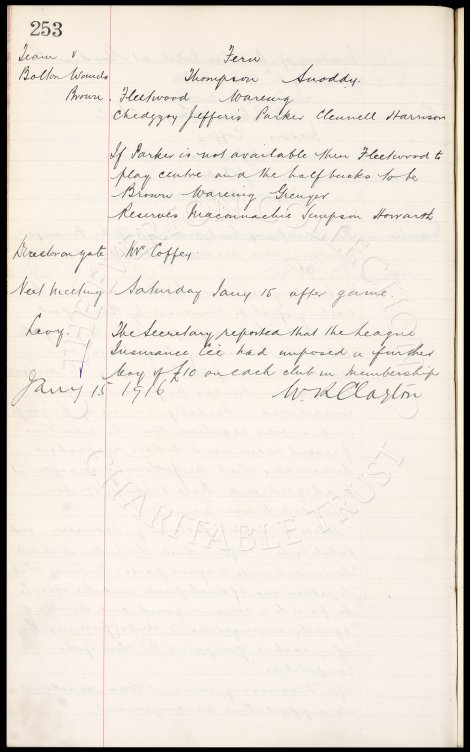 253
Team v Fern
Bolton Wands Thompson Snoddy.
Brown. Fleetwood Wareing
Chedgzoy Jefferis Parker Clennell Harrison
If Parker is not available then Fleetwood to
play centre and the half backs to be
Brown Wareing Grenyer
Reserves Maconnachie Simpson Howarth
Director on gate Mr Coffey.
Next Meeting Saturday Jany 15 after game.
Levy. The Secretary reported that the League
Insurance Cee had imposed a further
levy of £10 on each club in membership
Jany 15 1916 W.R. Clayton
CHARITABLE TRUST